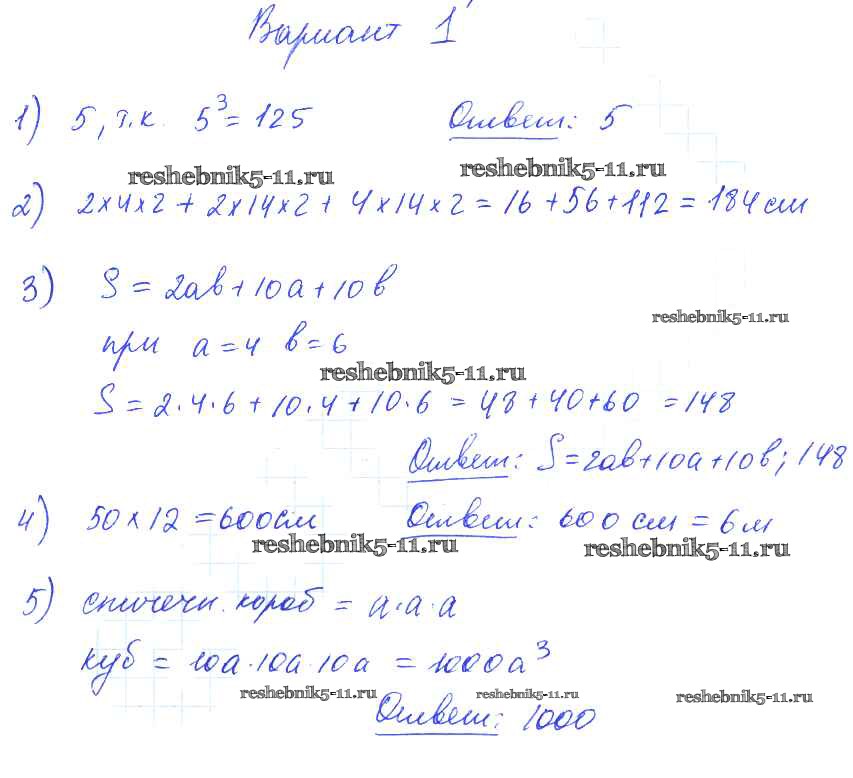 Вариант 1
1) 5, т.к. 5³ = 125 Ответ: 5
reshebnik5-11.ru reshebnik5-11.ru
2) 2×4×2 + 2×14×2 + 4×14×2 = 16 + 56 + 112 = 184 см
3) S = 2ab + 10a + 10b
reshebnik5-11.ru
при a = 4 b = 6
reshebnik5-11.ru
S = 2·4·6 + 10·4 + 10·6 = 48 + 40 + 60 = 148
Ответ: S = 2ab + 10a + 10b; 148
4) 50 × 12 = 600 см Ответ: 600 см = 6 м
reshebnik5-11.ru reshebnik5-11.ru
5) спичечн. короб = a·a·a
куб = 10a·10a·10a = 1000a³
reshebnik5-11.ru reshebnik5-11.ru reshebnik5-11.ru
Ответ: 1000